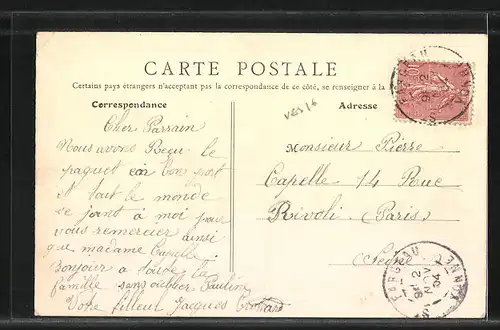 CARTE POSTALE
Certains pays étrangers n'acceptant pas la correspondance de ce côté, se renseigner à la
Correspondance
Adresse
Cher Parrain
Nous avons Reçu le
paquet en bon
et tout le monde
se joint à moi pour
vous remercier ainsi
que madame Capelle
Bonjour a toute la
famille sans oublier Pauline
Votre filleul Jacques
Monsieur Pierre
Capelle 14 Rue
Rivoli (Paris)
(Seine)
10
9E 2
NOV
04
YONNE